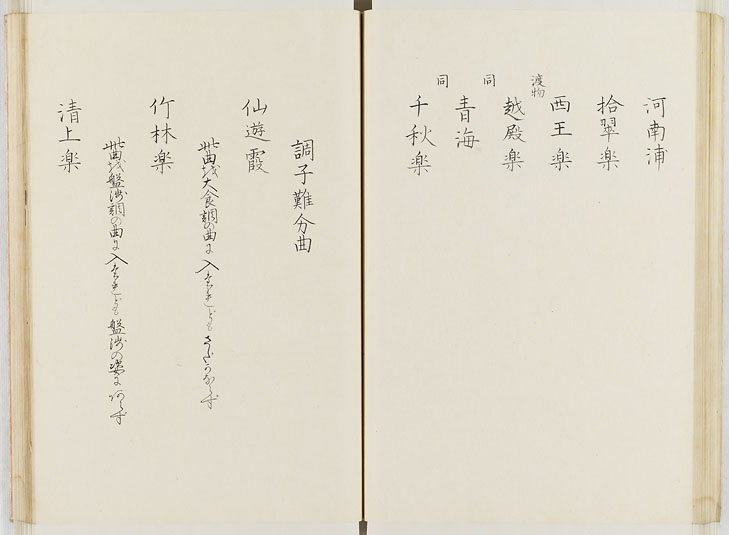 河南浦
拾翠楽
西王楽
渡物
越殿楽
同
青海
同
千秋楽
調子難分曲
仙遊霞
此曲を大食調の曲に入たれどもさだかならず
竹林楽
此曲を盤渉調の曲に入たれども盤渉の姿にあらず
清上楽